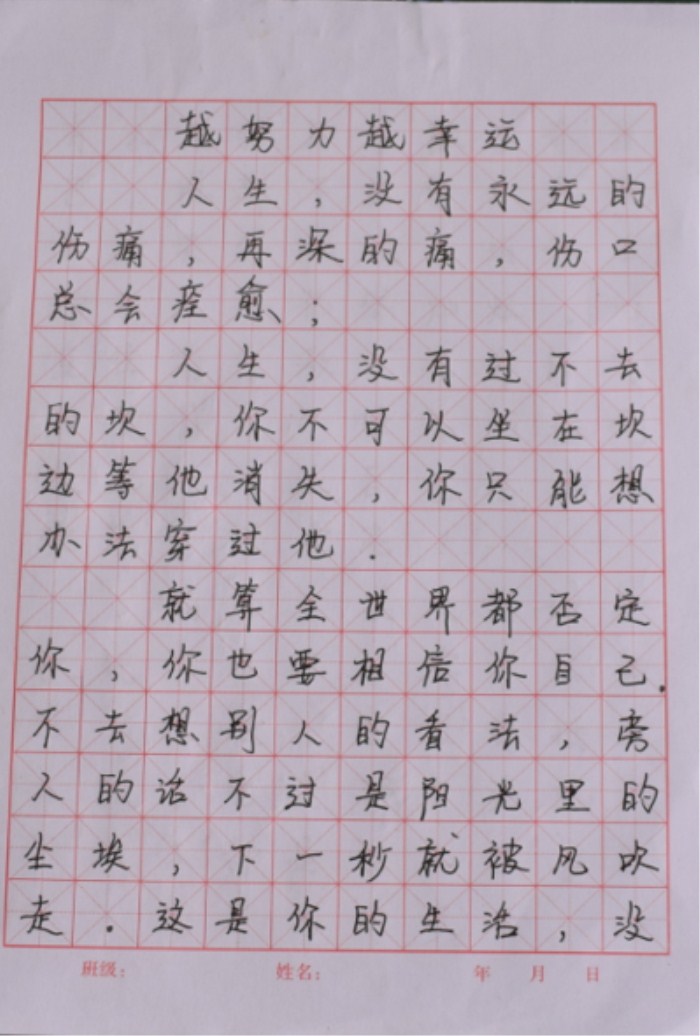 越努力越幸运
人生，没有永远的
伤痛，再深的痛，伤口
总会痊愈；
人生，没有过不去
的坎，你不可以坐在坎
边等他消失，你只能想
办法穿过他．
就算全世界都否定
你，你也要相信你自己．
不去想别人的看法，旁
人的话不过是阳光里的
尘埃，下一秒就被风吹
走．这是你的生活，没
班级： 姓名： 年 月 日